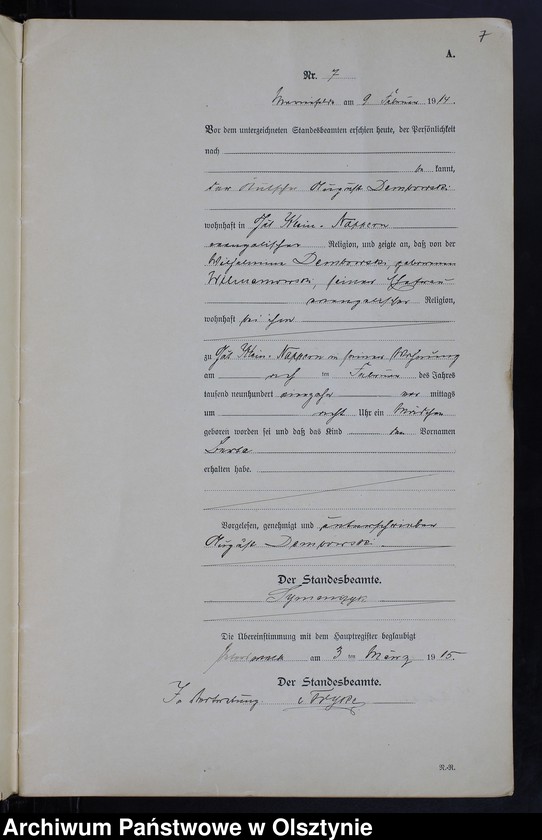 7
A.
Nr. 7
am 9 Februar 1914.
Vor dem unterzeichneten Standesbeamten erschien heute, der Persönlichkeit
nach
be kannt,
der August Demkowski
wohnhaft in Gut Klein-Nappern
evangelischer Religion, und zeigte an, daß von der
Wilhelmine Demkowski, geborenen
seiner Ehefrau
evangelischer Religion,
wohnhaft bei ihm
zu Gut Klein-Nappern in seiner Wohnung
am ten Februar des Jahres
tausend neunhundert vierzehn vor mittags
um acht Uhr ein Mädchen
geboren worden sei und daß das Kind den Vornamen
erhalten habe.
Vorgelesen, genehmigt und unterschrieben
August Demkowski
Der Standesbeamte.
Die Übereinstimmung mit dem Hauptregister beglaubigt
am 3 ten März 1915.
Der Standesbeamte.
In Vertretung.
N.-R.
Archiwum Państwowe w Olsztynie